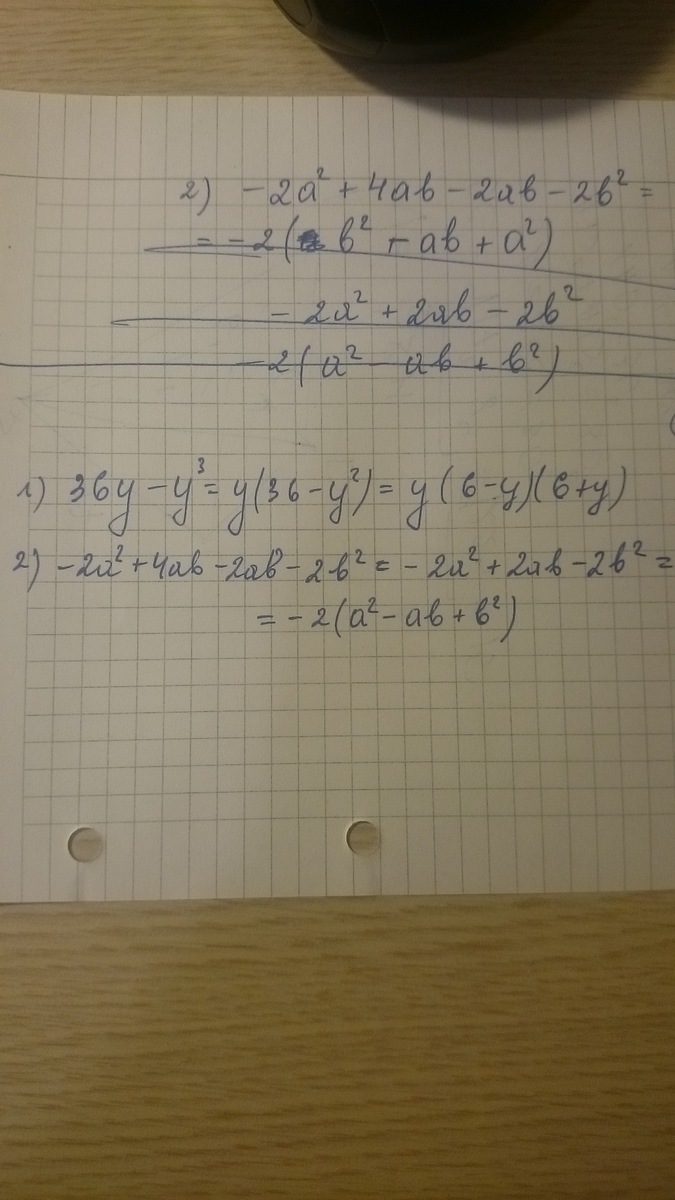 2) -2a² + 4ab - 2ab - 2b² =
= -2( b² - ab + a²)
- 2a² + 2ab - 2b²
-2(a² - ab + b²)
1) 36y - y³ = y(36 - y²) = y(6-y)(6+y)
2) -2a² + 4ab - 2ab - 2b² = - 2a² + 2ab - 2b² =
= -2(a² - ab + b²)